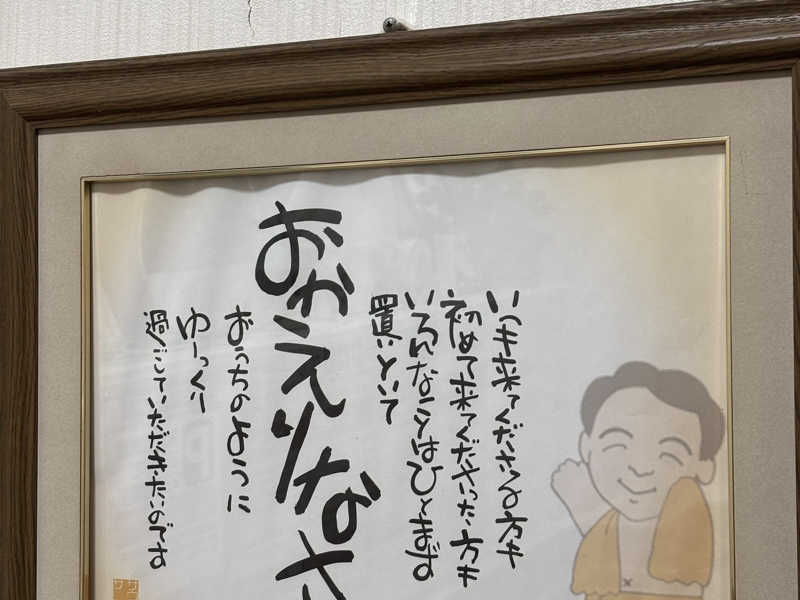 いつも来てくださる方も
初めて来てくださった方も
いろんなことはひとまず
置いといて
おかえりなさ
おうちのように
ゆーっくり
過ごしていただきたいのです